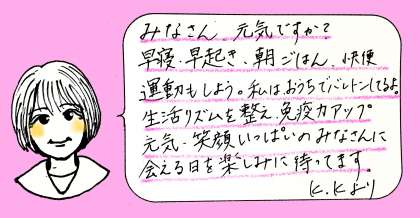 みなさん 元気ですか?
早寝・早起き、朝ごはん、快便
運動もしよう。私は、おうちでバレトンしてるよ。
生活リズムを整え、免疫力アップ
元気・笑顔いっぱいのみなさんに
会える日を楽しみに待ってます。
K.Kより